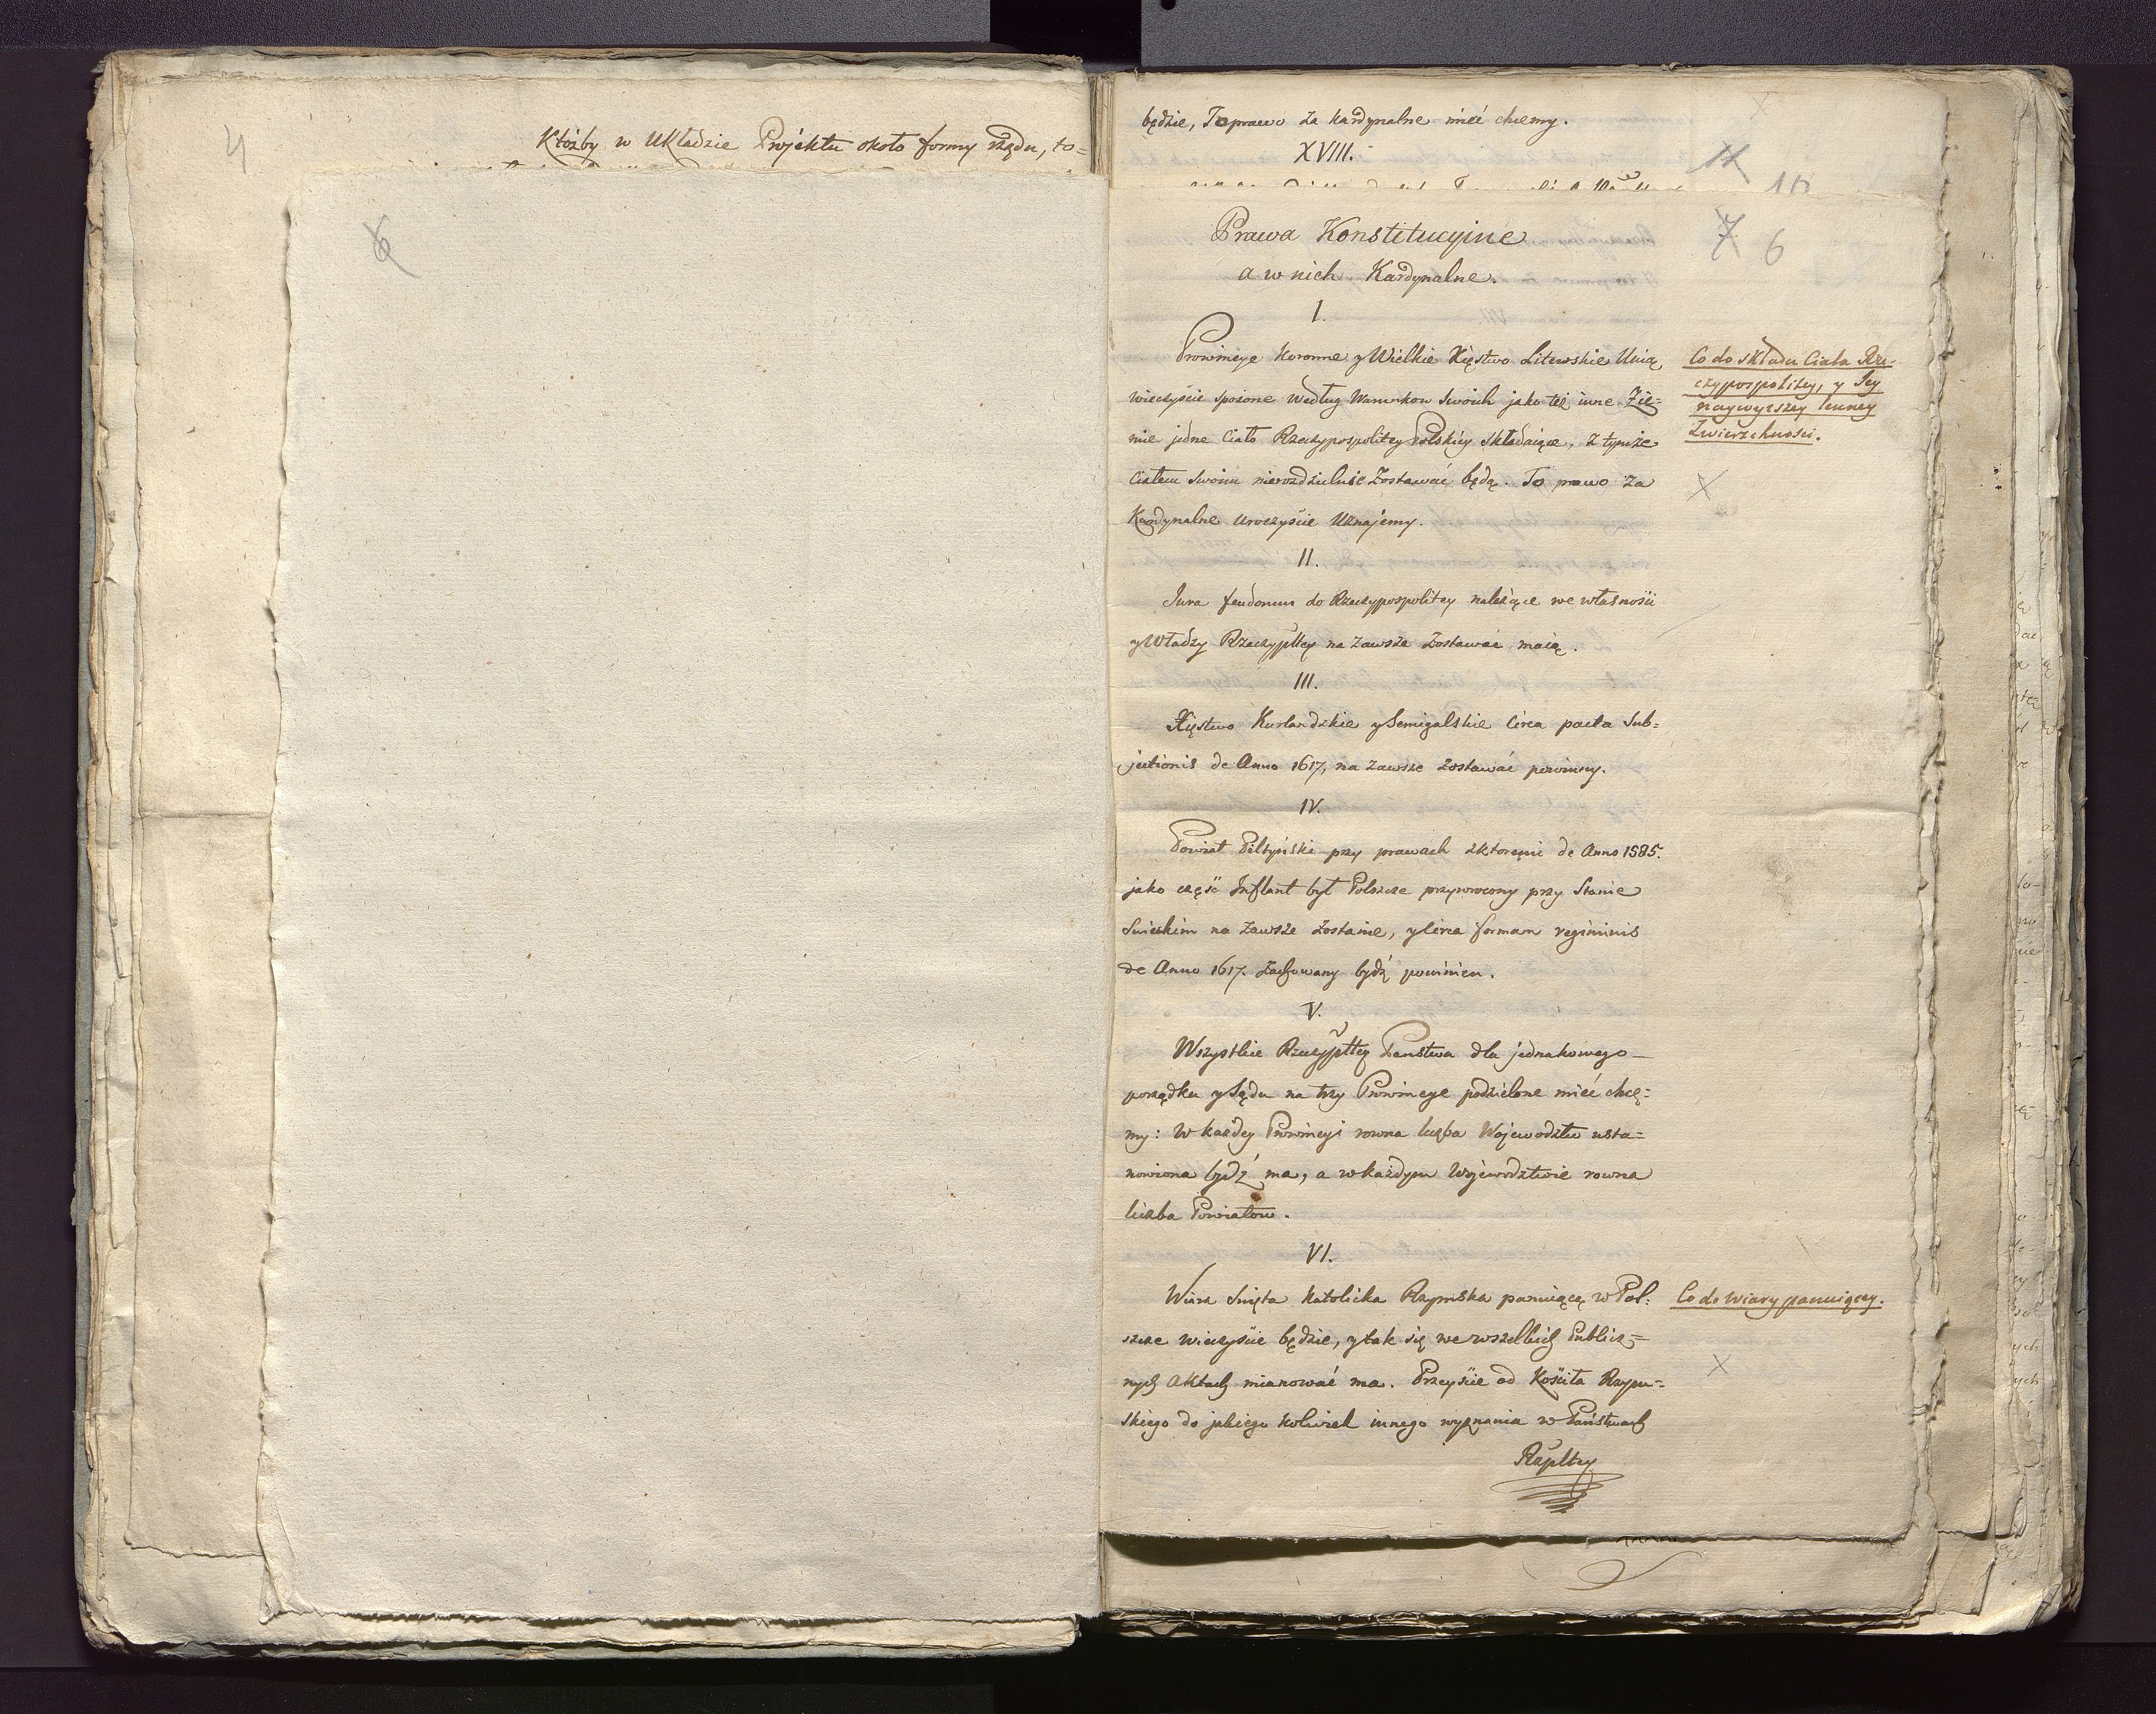 4
Któżby w Układzie Projektu około formy rządu, to=
6
będzie, To prawo za kardynalne mieć chcemy.
XVIII.
11
10
Prawa Konstitucyine
a w nich Kardynalne.
7 6
I.
Prowincye Koronne y Wielkie Xięstwo Litewskie Unią
wieczyście spoione według Warunkow swoich jako też inne Zie=
mie jedne Ciało Rzeczypospolitey Polskiey składaiące, z tymże
Ciałem swoim nierozdzielnie Zostawać będą. To prawo za
Kardynalne uroczyście Uznajemy.
Co do składu Ciała Rze=
czypospolitey, y Jey
naywyższey lenney
Zwierzchności.
II.
Jura feudorum do Rzeczypospolitey należące we własności
y Władzy Rzeczyplttey na zawsze zostawać maią.
III.
Xięstwo Kurlandzkie y Semigalskie Circa pacta Sub=
jectionis de Anno 1617, na zawsze zostawać powinny.
IV.
Powiat Piltyński przy prawach z ktoremi de Anno 1585.
jako część Inflant był Polszcze przywrocony przy Stanie
Swieckim na zawsze zostanie, y circa formam regiminis
de Anno 1617. Zachowany bydź powinien.
V.
Wszystkie Rzeczyplttey Panstwa dla jednakowego
porządku y Sądu na trzy Prowincye podzielone mieć chce=
my: w każdey Prowincyi rowna liczba Wojewodztw usta=
nowiona bydź ma, a w każdym Wojewodztwie rowna
liczba Powiatow.
VI.
Wiara Swięta Katolicka Rzymska panuiącą w Pol=
szcze wieczyście będzie, y tak się we wszelkich Publicz=
nych Aktach mianować ma. Przeyście od Kościoła Rzym=
skiego do jakiego kolwiek innego wyznania w Państwach
Co do Wiary panuiącey.
Rzpltey